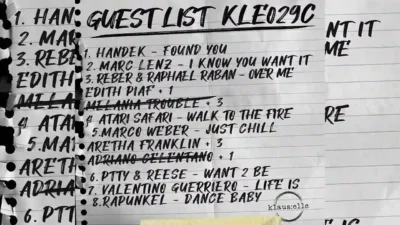 GUEST LIST KLE029C
1. HANDEK - FOUND YOU
2. MARC LENZ - I KNOW YOU WANT IT
3. REBER & RAPHAEL RABAN - OVER ME
EDITH PIAF + 1
MELANIA TROUBLE + 3
4 ATARI SAFARI - WALK TO THE FIRE
5.MARCO WEBER - JUST CHILL
ARETHA FRANKLIN + 3
ADRIANO CELENTANO + 1
6. PTTY & REESE - WANT 2 BE
7. VALENTINO GUERRIERO - LIFE IS
8.RAPUNKEL - DANCE BABY
klaus:elle
1. HAN
2. MAR
3. REBE
EDITH
MELA
4 ATAI
5.MA
ARETH
ADRIA
6. PTT
NT IT
ME
RE